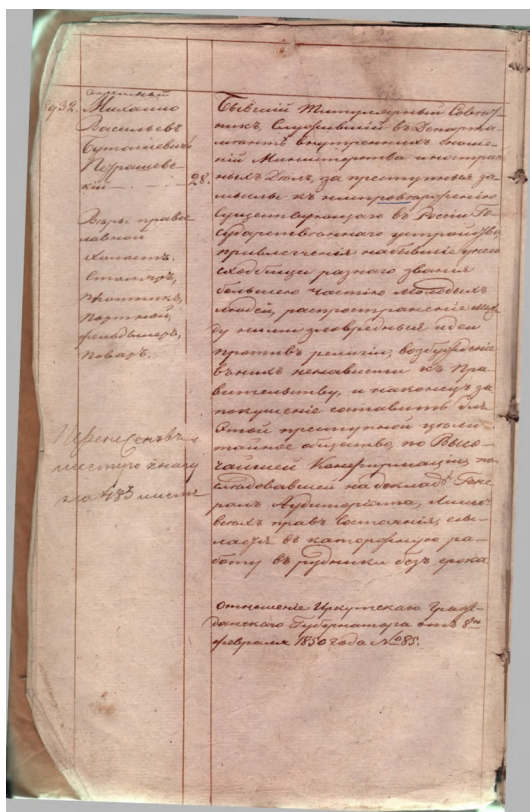 932. Михайло
Васильевъ
Буташевичъ
Петрашев-
скій 28.
Вѣры право-
славной
Холостъ.
Столяръ,
плотникъ,
портной,
фельдшеръ,
поваръ.
Перенесенъ въ
шестую книгу
на 483 листъ
Бывшій Титулярный Совѣт-
никъ, Служившій въ Департа-
ментѣ внутреннихъ сноше-
ній Министерства иностран-
ныхъ Дѣлъ, за преступные за-
мыслы къ ниспроверженію
существующаго въ Россіи Го-
сударственнаго устройства,
привлеченія на бывшіе у него
сходбища разнаго званія
большею частію молодыхъ
людей, распространеніе меж-
ду ними зловредныя идеи
противъ религіи, возбужденіе
въ нихъ ненависти къ Пра-
вительству, и наконецъ за
покушеніе составить для
этой преступной цѣли
тайное общество, по Высо-
чайшей Конфирмаціи, по-
слѣдовавшей на докладѣ Гене-
ралъ Аудиторіата, лишенъ
всѣхъ правъ состоянія, ссы-
лается въ каторжную ра-
боту въ рудники безъ срока.
Отношеніе Иркутскаго Граж-
данскаго Губернатора отъ 8го
февраля 1850 года № 85.